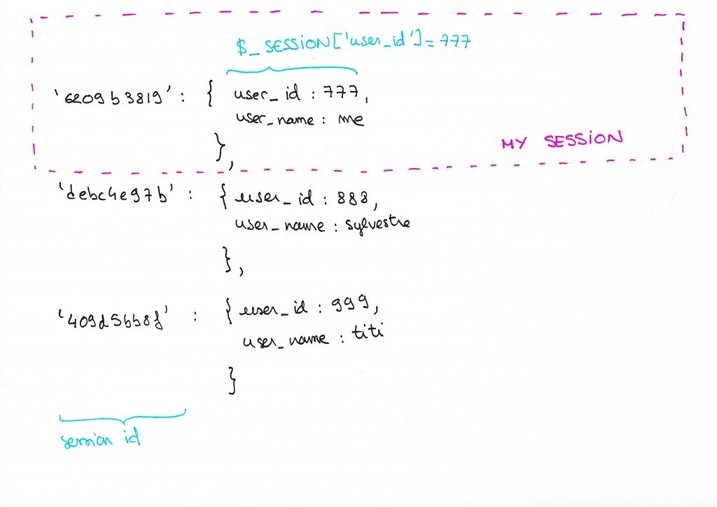 $_SESSION['user_id'] = 777
'6209b3819' : { user_id : 777,
user_name : me
},
MY SESSION
'debc4e97b' : { user_id : 888,
user_name : sylvestre
},
'409d5bb8f' : { user_id : 999,
user_name : titi
}
session id